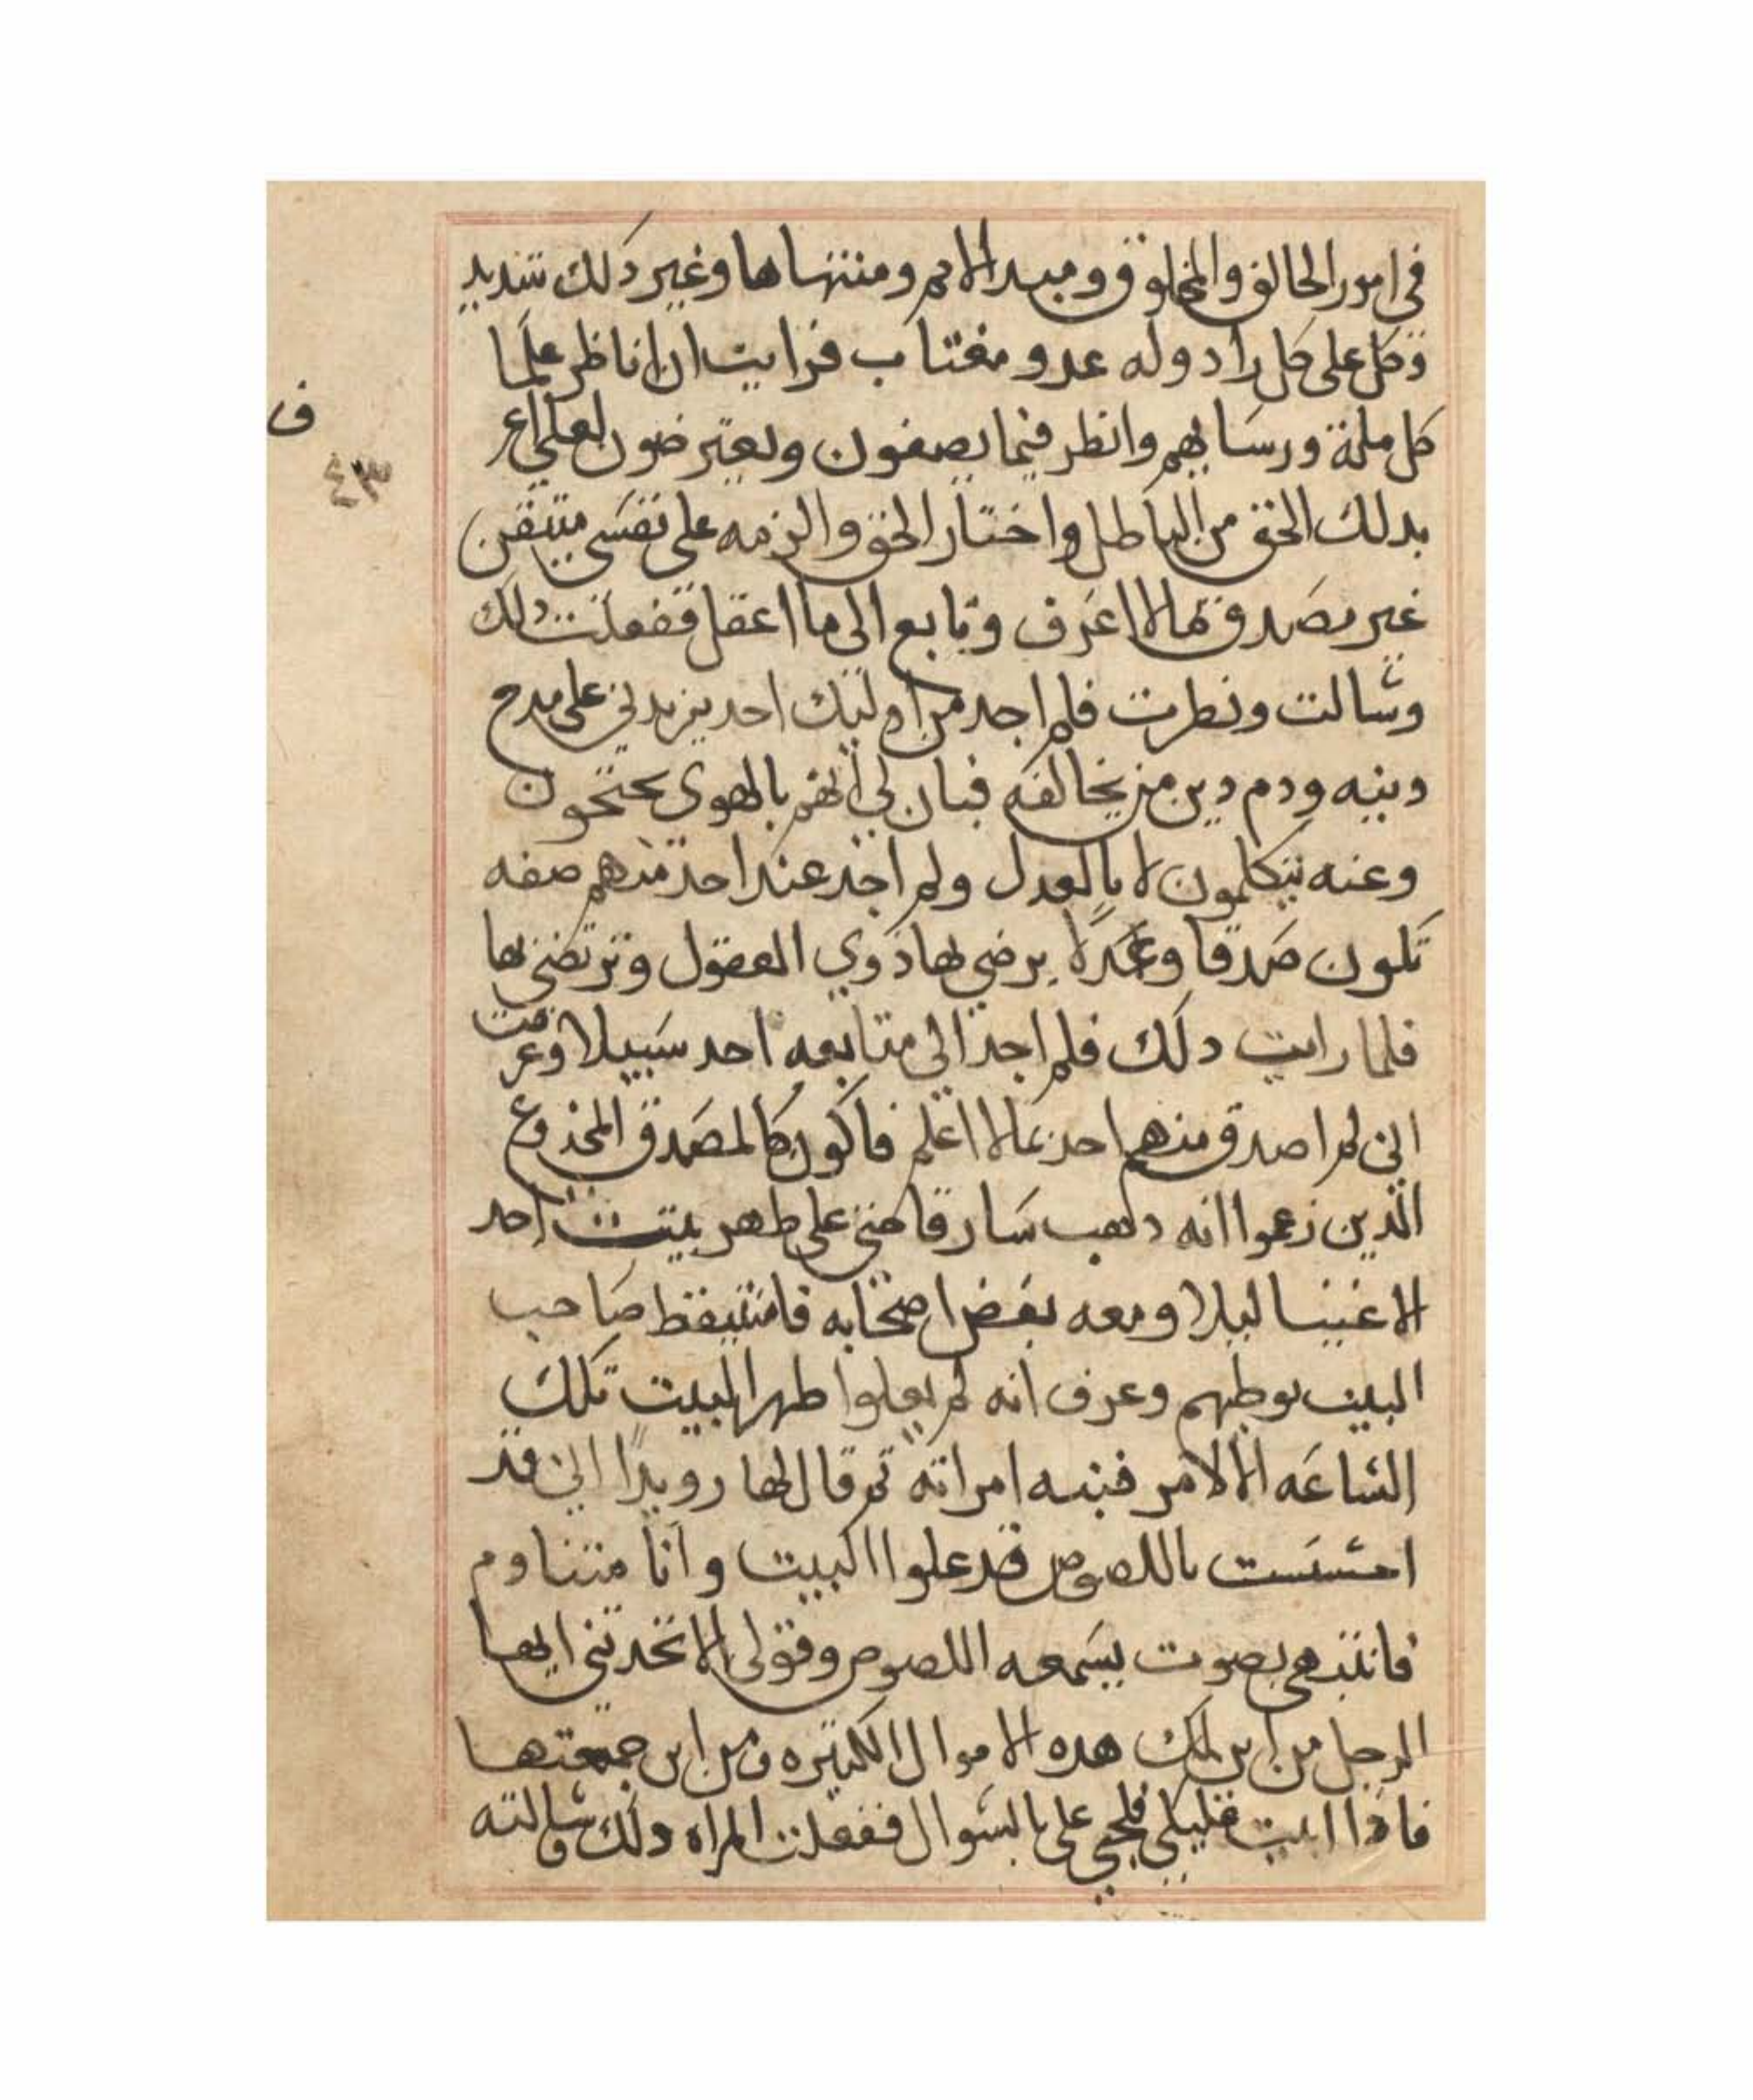 في امور الخالق والمخلوق ومبدا الامر ومنتهاها وغير ذلك شديد
وكل على كل راد وله عدو مغتاب فرايت ان اناظر علما
كل ملة ورسايهم وانظر فيما يصفون ويعترضون لعلي اعر
بدلك الحق من الباطل واختار الحق والزمه على نفسي متيقن
غير مصدق بما لا اعرف وتابع الى ما اعقل ففعلت دلك
وسالت ونطرت فلم اجد من اوليك احد يزيدني على مدح
دينه ودم دين من يخالفه فبان لي انهم بالهوى يحتجون
وعنه يتكلمون لا بالعدل ولم اجد عند احد منهم صفه
تكون صدقا وعدلا يرضى بها ذوي العقول وترتضي بها
فلما رايت دلك فلم اجد الى متابعه احد سبيلا وعرفت
اني لم اصدق منهم احد بما لا اعلم فاكون كالمصدق المخدوع
الدين زعموا انه دهب سارقا حتى على طهر بيت احد
الاغنيا ليلا ومعه بعض اصحابه فاستيقظ صاحب
البيت بوطيهم وعرف انه لم يعلوا طهر البيت تلك
الساعه الا لامر فنبه امراته تم قال لها رويدا اني قد
احسست باللصوص قد علوا البيت وانا متناوم
فانتبهي بصوت يسمعه اللصوص وقولى الا تخدتني ايها
الرجل من اين لك هده الاموال الكتيره ومن اين جمعتها
فاذا ابيت عليكي فلحي على بالسوال ففعلت المراه دلك وسالته
ف
٤٣